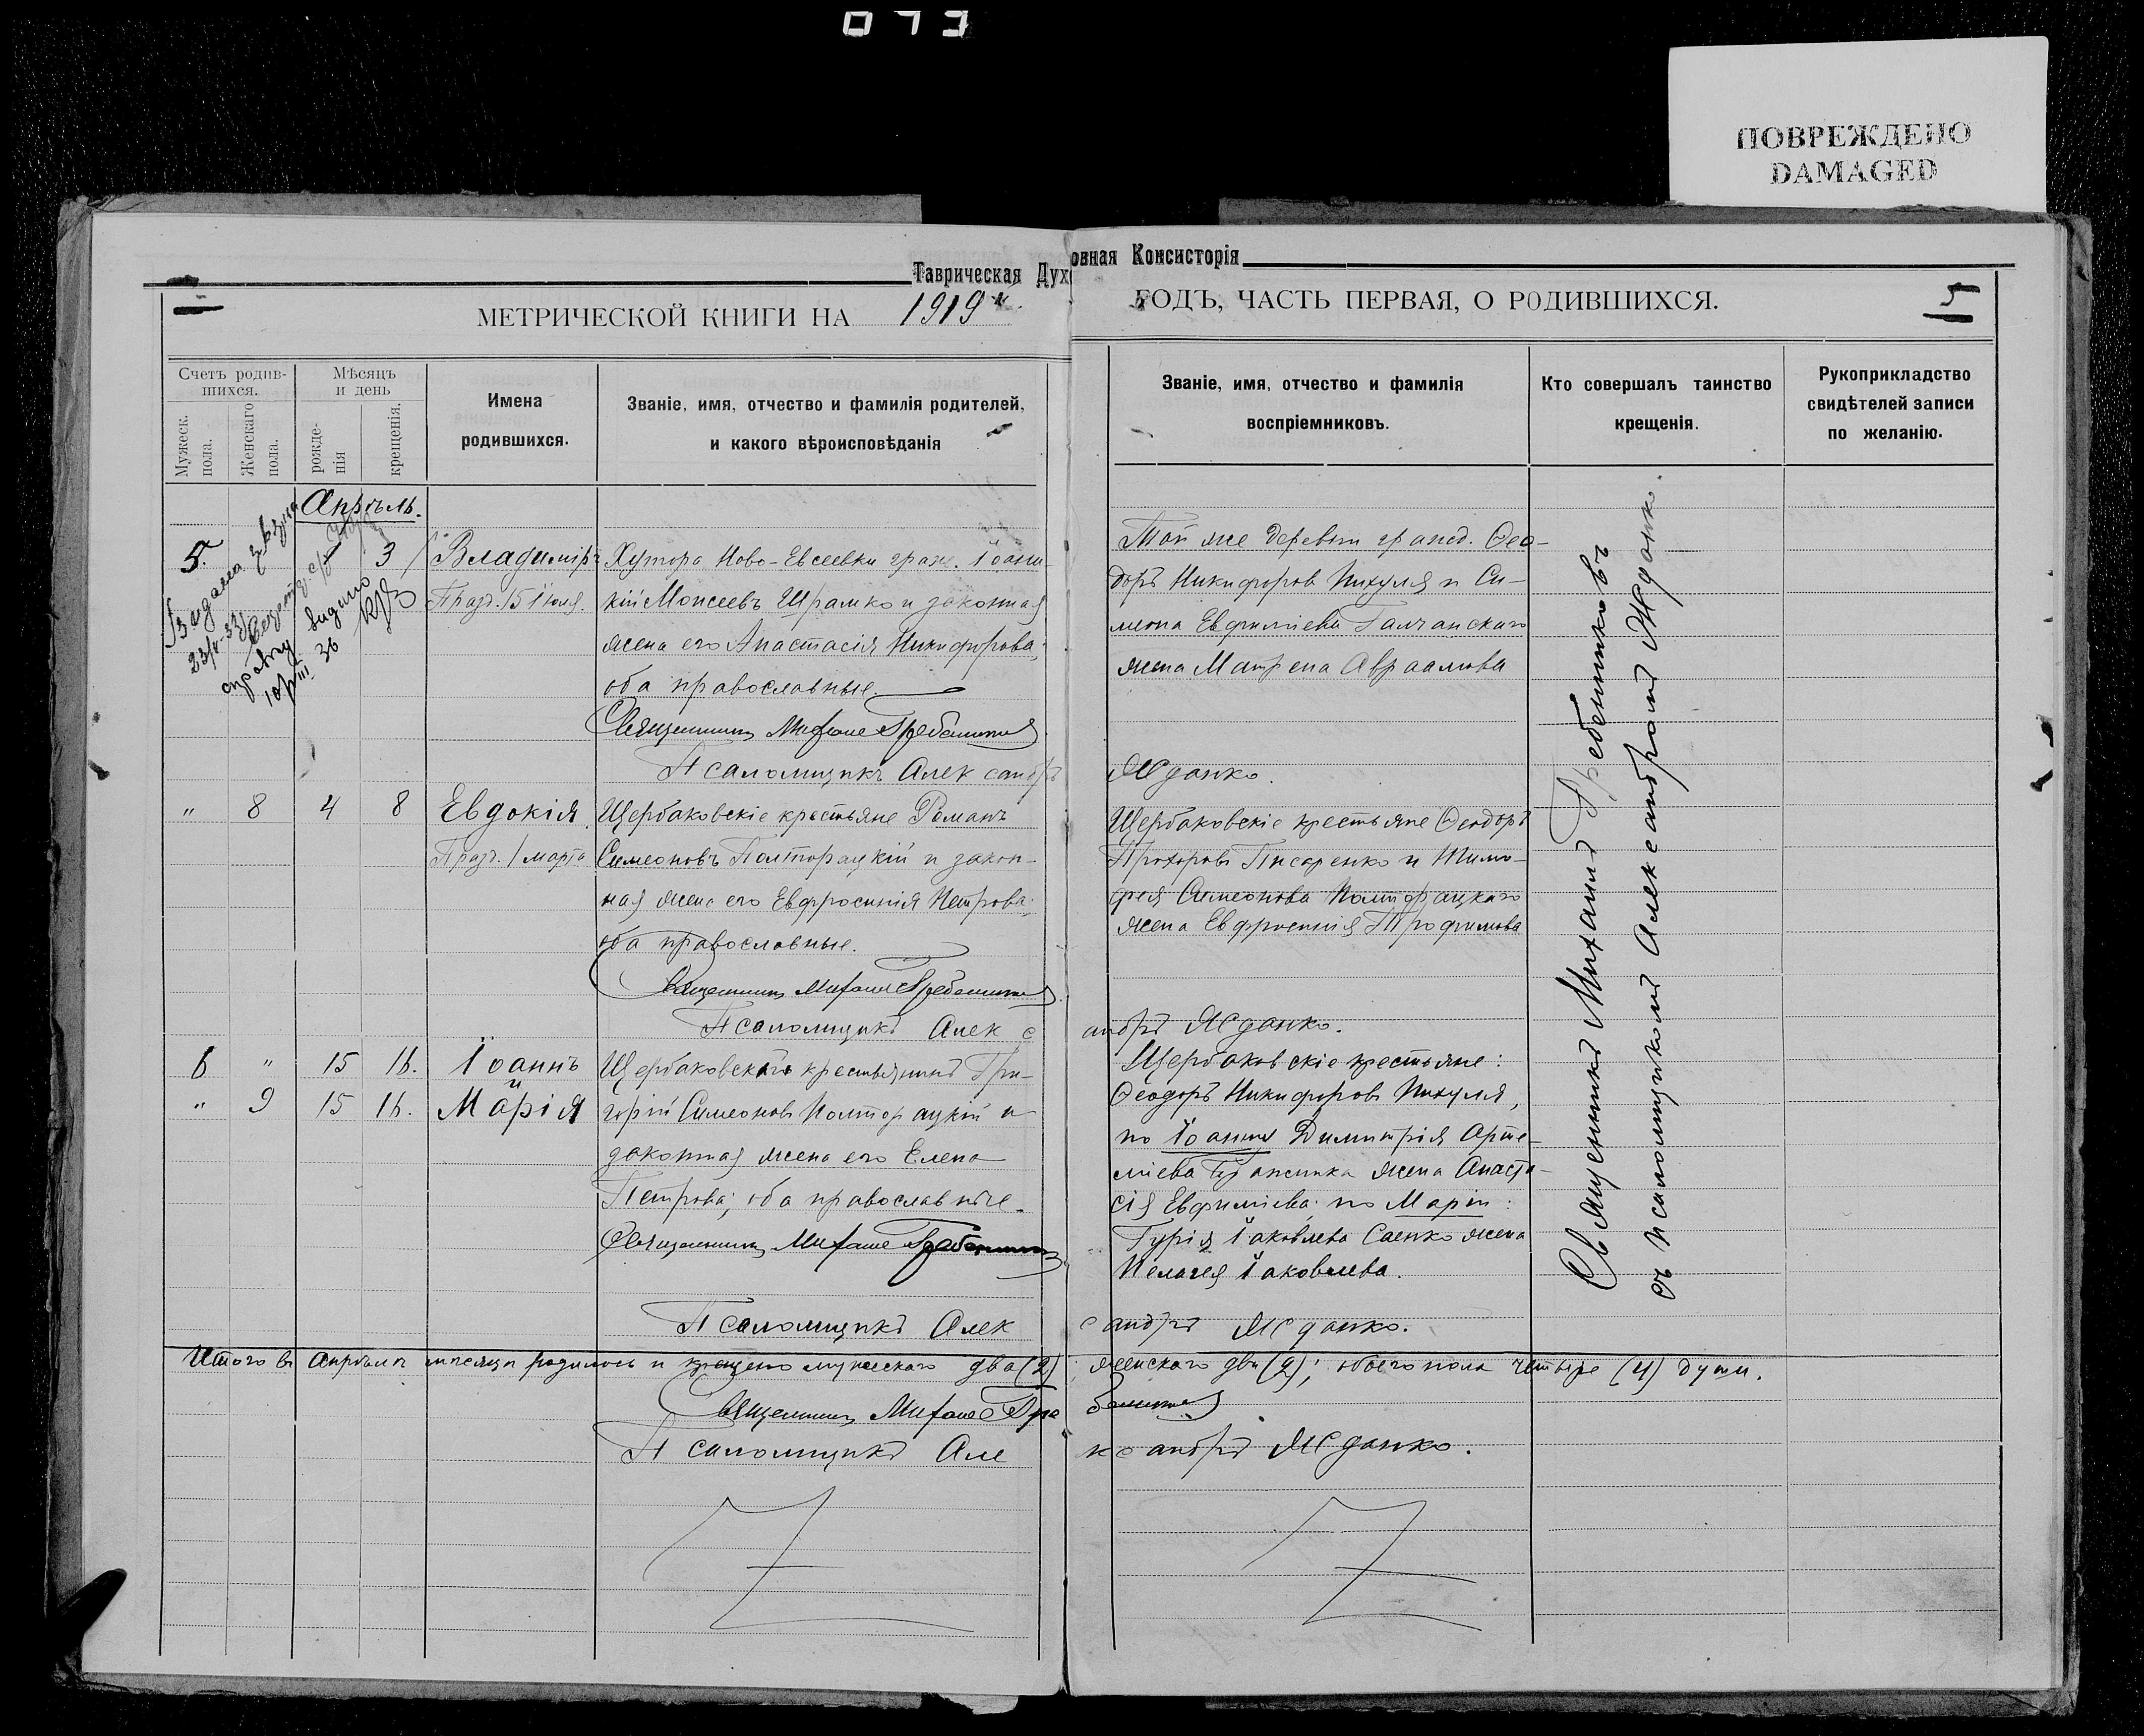 073
ПОВРЕЖДЕНО
DAMAGED
Таврическая Духовная Консисторія
МЕТРИЧЕСКОЙ КНИГИ НА 1919 й ГОДЪ, ЧАСТЬ ПЕРВАЯ, О РОДИВШИХСЯ.
5
Счетъ родив-
шихся.
Мужеск.
пола.
Женскаго
пола.
Мѣсяцъ
и день
рожде-
нія
крещенія.
Имена
родившихся.
Званіе, имя, отчество и фамилія родителей,
и какого вѣроисповѣданія
Званіе, имя, отчество и фамилія
воспріемниковъ.
Кто совершалъ таинство
крещенія.
Рукоприкладство
свидѣтелей записи
по желанію.
Апрѣль.
5. 3 Владиміръ
Празд. 15 Іюля.
справку видано
36
Хутора Ново-Евсеевки гражд. Іоанни-
кій Моисеевъ Шрамко и законная
жена его Анастасія Никифорова;
оба православные.
Священникъ Михаилъ Гребенниковъ
Псаломщикъ Александръ Жданко.
Той же деревни гражд. Ѳео-
доръ Никифоровъ Пихуля и Си-
меона Евфиміева Галчанскаго
жена Матрена Авраамова
" 8 4 8 Евдокія
Празд. 1 марта
Щербаковскіе крестьяне Романъ
Симеоновъ Полторацкій и закон-
ная жена его Евфросинія Петрова;
оба православные.
Священникъ Михаилъ Гребенниковъ
Псаломщикъ Александръ Жданко.
Щербаковскіе крестьяне Ѳеодоръ
Прохоровъ Писаренко и Тимо-
фея Симеонова Полторацкаго
жена Евфросинія Трофимова
6 " 15 16. Іоаннъ
и
" 9 15 16. Марія
Щербаковскаго крестьянинъ Гри-
горій Симеоновъ Полторацкій и
законная жена его Елена
Петрова; оба православные.
Священникъ Михаилъ Гребенниковъ
Псаломщикъ Александръ Жданко.
Щербаковскіе крестьяне:
Ѳеодоръ Никифоровъ Пихуля,
по Іоанну Димитрія Арте-
міева жена Анаста-
сія Евфиміева; по Маріи:
Гурія Іаковлева Саенко жена
Пелагея Іаковлева.
Священникъ Михаилъ Гребенниковъ
съ псаломщикомъ Александромъ Жданко.
Итого въ Апрѣлѣ мѣсяцѣ родилось и крещено мужескаго два (2); женскаго двѣ (2); обоего пола четыре (4) души.
Священникъ Михаилъ Гребенниковъ
Псаломщикъ Александръ Жданко.